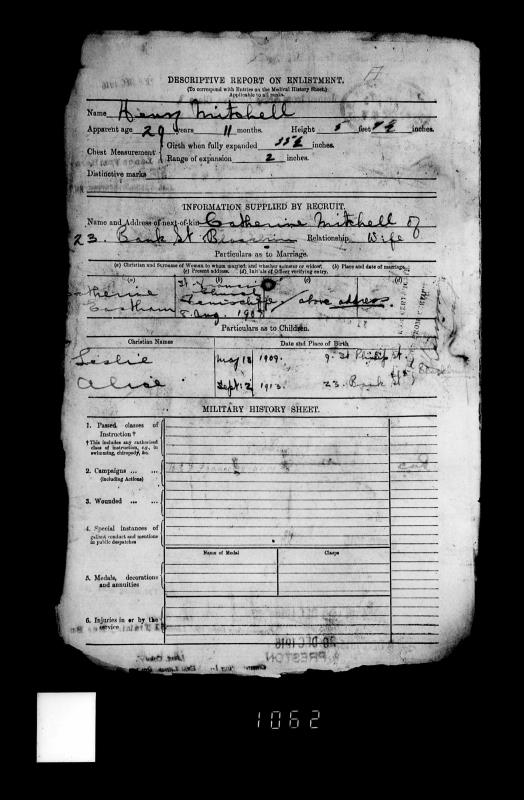 DESCRIPTIVE REPORT ON ENLISTMENT.
(To correspond with Entries on the Medical History Sheet.)
Applicable to all ranks.
Name Henry Mitchell
Apparent age 29 years 11 months. Height 5 feet inches.
Chest Measurement
Girth when fully expanded 35½ inches.
Range of expansion 2 inches.
Distinctive marks
INFORMATION SUPPLIED BY RECRUIT.
Name and Address of next-of-kin Catherine Mitchell of
23. Bank St Relationship Wife
Particulars as to Marriage.
(a) Christian and Surname of Woman to whom married, and whether spinster or widow. (b) Place and date of marriage.
(c) Present address. (d) Initials of Officer verifying entry.
(a) (b) (c) (d)
St
Church
above address
8. Aug. 190
Particulars as to Children.
Christian Names Date and Place of Birth
Leslie May 18 1909. 9. St Philip St.
Alice Sept 12 1913. 23. Bank St
MILITARY HISTORY SHEET.
1. Passed classes of
Instruction †
† This includes any authorised
class of instruction, e.g., in
swimming, chiropody, &c.
2. Campaigns ... ...
(including Actions)
3. Wounded ... ...
4. Special instances of
gallant conduct and mentions
in public despatches
Name of Medal Clasps
5. Medals, decorations
and annuities
6. Injuries in or by the
service
DEC 1916
PRESTON
1062